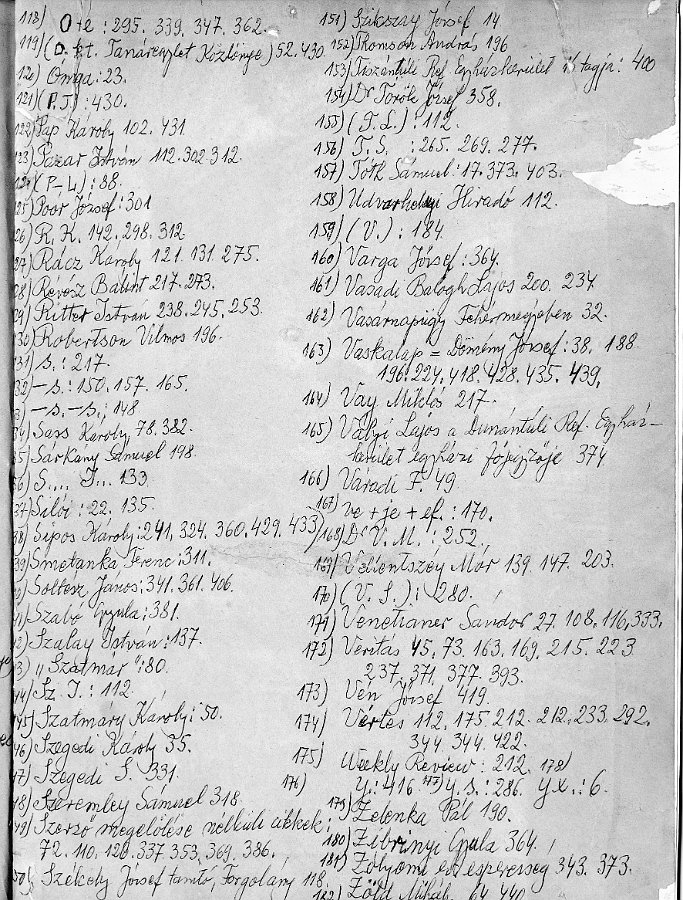 118) Ote : 295. 339. 347. 362.
119) (O. kt. Tanáregylet Közlönye) 52. 430
120) Omga : 23.
121) (P. J.) : 430.
122) Pap Károly 102. 431
123) Pazar István 112. 302. 312.
124) (P-L) : 88.
125) Poór József : 301
126) R. K. 142. 298. 312
127) Rácz Károly 121. 131. 275.
128) Révész Bálint 217. 273.
129) Ritter István 238. 245. 253.
130) Robertson Vilmos 196.
131) s. : 217.
132) -s. : 150. 157. 165.
133) -s. -s. ; 148
134) Sass Károly 78. 382.
135) Sárkány Sámuel 198.
136) S.... J... 133
137) Silói : 22. 135.
138) Sipos Károly : 241. 324. 360. 429. 433
139) Smetanka Ferenc : 311.
140) Soltész János : 341. 361. 406.
141) Szabó Gyula : 381.
142) Szalay István : 137.
143) „Szatmár" : 80.
144) Sz. J. : 112
145) Szatmáry Károly : 50.
146) Szegedi Károly 55.
147) Szegedi S. 331.
148) Szeremley Sámuel 318.
149) Szerző megelölése nélküli cikkek :
72. 110. 128. 337 353, 369. 386.
150) Székely József tanító, Forgolány 118.
151) Szikszay József 14
152) Thomson András 196
153) Tiszántúli Ref Egyházkerület tagja : 400
154) Dr Török József 358.
155) (T. L.) : 112.
156) T. S. : 265. 269. 277.
157) Tóth Sámuel : 17. 373. 403.
158) Udvarhelyi Hiradó 112.
159) (V.) : 184.
160) Varga József : 364.
161) Vasadi Balogh Lajos 200. 234
162) Vasárnapügy Fehérmegyében 32.
163) Vaskalap = Dömény József : 38. 188
196. 224. 418. 428. 435. 439.
164) Vay Miklós 217.
165) Vályi Lajos a Dunántúli Ref. Egyház-
kerület egyházi főjegyzője 374
166) Váradi F. 49.
167) ve + je + ef. : 170.
168) Dr V. M. : 252.
169) Velientszey Mór 139. 147. 203.
170) (V. S.) : 280.
171) Venetianer Sándor 27. 108. 116. 333.
172) Veritás 45. 73. 163. 169. 215. 223
237. 371. 377. 393.
173) Vén József 419.
174) Vértes 112. 175. 212. 212. 233. 292.
344 344. 422.
175) Weekly Review : 212. 178)
176) Y. : 416. 177) Y. s. : 286. Y X. : 6.
179) Zelenka Pál 190.
180) Zibrinyi Gyula 364.
181) Zólyomi ev. esperesség 343. 373.
182) Zöld Mihály 64. 440